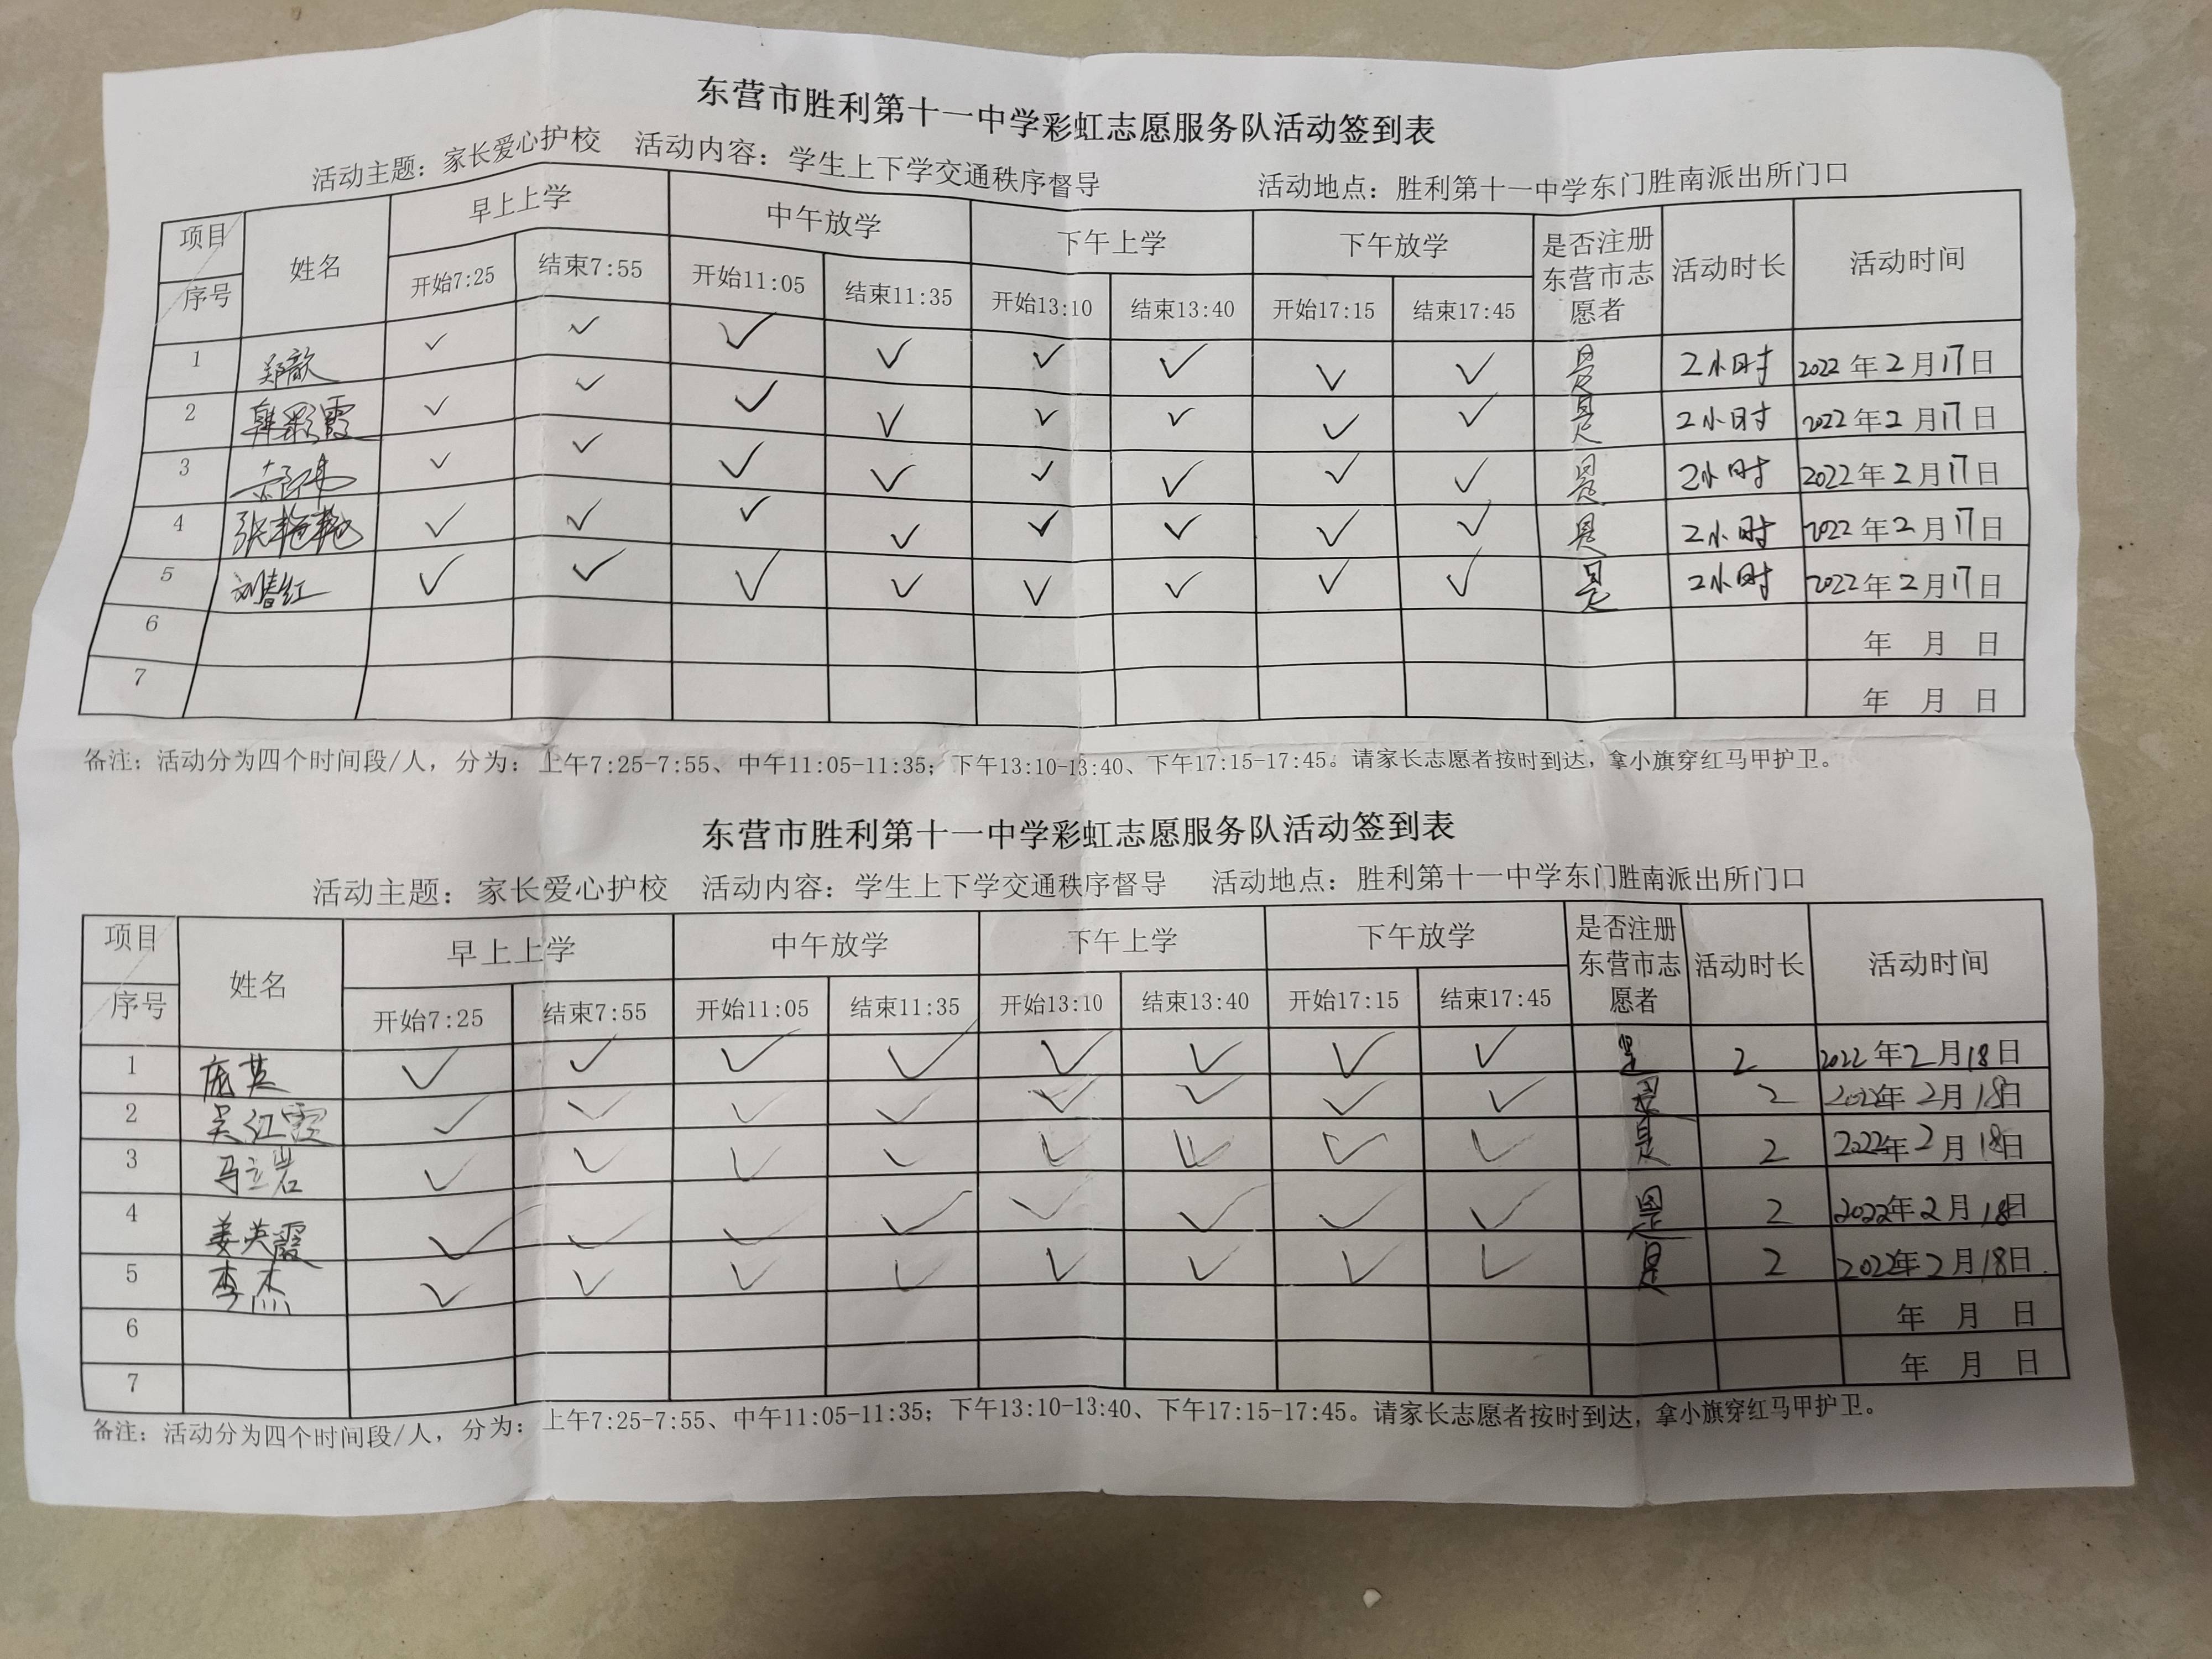 东营市胜利第十一中学彩虹志愿服务队活动签到表
活动主题：家长爱心护校 活动内容：学生上下学交通秩序督导 活动地点：胜利第十一中学东门胜南派出所门口
项目 序号 姓名 早上上学 中午放学 下午上学 下午放学 是否注册东营市志愿者 活动时长 活动时间
开始7:25 结束7:55 开始11:05 结束11:35 开始13:10 结束13:40 开始17:15 结束17:45
1 郑歆 ✓ ✓ ✓ ✓ ✓ ✓ ✓ ✓ 是 2小时 2022年2月17日
2 韩彩霞 ✓ ✓ ✓ ✓ ✓ ✓ ✓ ✓ 是 2小时 2022年2月17日
3 ✓ ✓ ✓ ✓ ✓ ✓ ✓ ✓ 是 2小时 2022年2月17日
4 张艳艳 ✓ ✓ ✓ ✓ ✓ ✓ ✓ ✓ 是 2小时 2022年2月17日
5 刘春红 ✓ ✓ ✓ ✓ ✓ ✓ ✓ ✓ 是 2小时 2022年2月17日
6 年 月 日
7 年 月 日
备注：活动分为四个时间段/人，分为：上午7:25-7:55、中午11:05-11:35；下午13:10-13:40、下午17:15-17:45。请家长志愿者按时到达，拿小旗穿红马甲护卫。
东营市胜利第十一中学彩虹志愿服务队活动签到表
活动主题：家长爱心护校 活动内容：学生上下学交通秩序督导 活动地点：胜利第十一中学东门胜南派出所门口
项目 序号 姓名 早上上学 中午放学 下午上学 下午放学 是否注册东营市志愿者 活动时长 活动时间
开始7:25 结束7:55 开始11:05 结束11:35 开始13:10 结束13:40 开始17:15 结束17:45
1 庞英 ✓ ✓ ✓ ✓ ✓ ✓ ✓ ✓ 是 2 2022年2月18日
2 吴红霞 ✓ ✓ ✓ ✓ ✓ ✓ ✓ ✓ 是 2 2022年2月18日
3 马立岩 ✓ ✓ ✓ ✓ ✓ ✓ ✓ ✓ 是 2 2022年2月18日
4 姜英霞 ✓ ✓ ✓ ✓ ✓ ✓ ✓ ✓ 是 2 2022年2月18日
5 李杰 ✓ ✓ ✓ ✓ ✓ ✓ ✓ ✓ 是 2 2022年2月18日
6 年 月 日
7 年 月 日
备注：活动分为四个时间段/人，分为：上午7:25-7:55、中午11:05-11:35；下午13:10-13:40、下午17:15-17:45。请家长志愿者按时到达，拿小旗穿红马甲护卫。